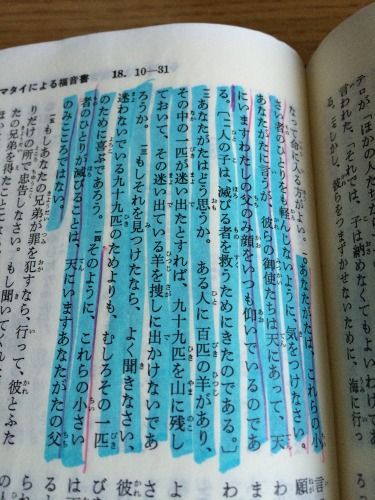 マタイによる福音書 18. 10—31
テロが「ほかの人た
言われた、「それでは、子は納めなくてもよいわ
る。しかし、彼らをつまずかせないために、海に行っ
なって命に入る方がよい。一〇あなたがたは、これらの小
さい者のひとりをも軽んじないように、気をつけなさい。
あなたがたに言うが、彼らの御使たちは天にあって、天
にいますわたしの父のみ顔をいつも仰いでいるのであ
る。〔一一人の子は、滅びる者を救うためにきたのである。〕
一二あなたがたはどう思うか。ある人に百匹の羊があり、
その中の一匹が迷い出たとすれば、九十九匹を山に残し
ておいて、その迷い出ている羊を捜しに出かけないであ
ろうか。一三もしそれを見つけたなら、よく聞きなさい、
迷わないでいる九十九匹のためよりも、むしろその一匹
のために喜ぶであろう。一四そのように、これらの小さい
者のひとりが滅びることは、天にいますあなたがたの父
のみこころではない。
一五もしあなたの兄弟が罪を犯すなら、行って、彼とふた
りだけの所で忠告しなさい。もし聞いてくれた
たの兄弟を得たこ